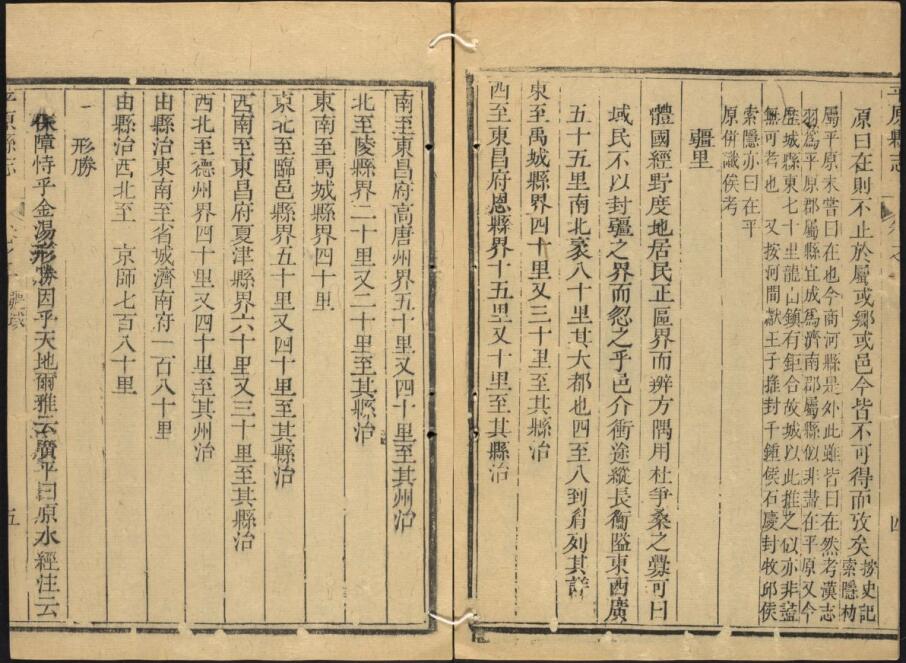 平原縣志
原曰在則不止於屬或鄉或邑今皆不可得而攷矣
按史記索隱
屬平原未嘗曰在也今商河縣是外此雖皆曰在然考漢志
羽為平原郡屬縣宜成為濟南郡屬縣似非盡在平原又今
歷城縣東七十里龍山鎮有鉅合故城以此推之似亦非盡
無可者也 又按河間獻王子推封千鍾侯石慶封牧邱侯
索隱亦曰在平
原併識俟考
疆里
體國經野度地居民正區界而辨方隅用杜爭桑之釁可曰
域民不以封疆之界而忽之乎邑介衝途縱長衡隘東西廣
五十五里南北袤八十里其大都也四至八到肩列其詳
東至禹城縣界四十里又三十里至其縣治
西至東昌府恩縣界十五里又十里至其縣治
四
南至東昌府高唐州界五十里又四十里至其州治
北至陵縣界二十里又二十里至其縣治
東南至禹城縣界四十里
東北至臨邑縣界五十里又四十里至其縣治
西南至東昌府夏津縣界六十里又三十里至其縣治
西北至德州界四十里又四十里至其州治
由縣治東南至省城濟南府一百八十里
由縣治西北至 京師七百八十里
形勝
保障恃乎金湯形勝因乎天地爾雅云廣平曰原水經注云
平原縣志
五